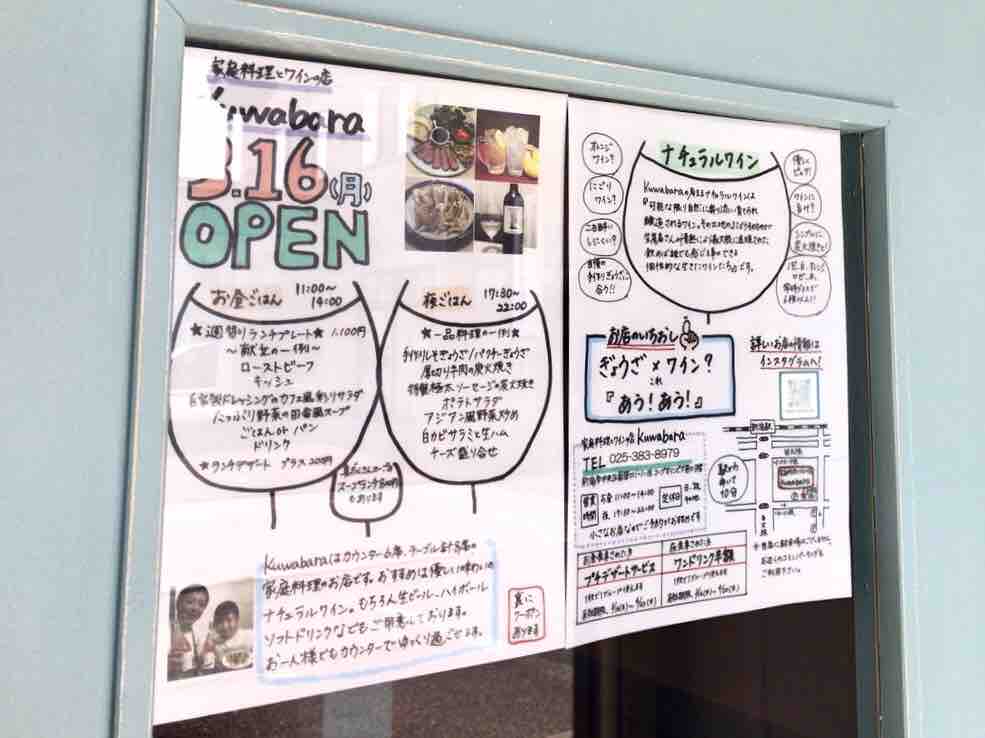 家庭料理とワインの店
Kuwabara
3.16(月)
OPEN
お昼ごはん 11:00〜14:00
★週替りランチプレート★ 1,100円
〜献立の一例〜
ローストビーフ
キッシュ
自家製ドレッシングのカフェ風彩りサラダ
たっぷり野菜の田舎風スープ
ごはん or パン
ドリンク
★ランチデザート プラス200円
スープランチ
もあります
夜ごはん 17:30〜22:00
★一品料理の一例★
手作りしそぎょうざ/パクチーぎょうざ
厚切り牛肉の炭火焼き
特製極太ソーセージの炭火焼き
ポテトサラダ
アジアン風野菜炒め
白カビサラミと生ハム
チーズ盛り合せ
Kuwabaraはカウンター6席、テーブル
家庭料理のお店です。おすすめは優しい味わいの
ナチュラルワイン。もちろん生ビール、ハイボール
ソフトドリンクなどもご用意しております。
お一人様でもカウンターでゆっくり過ごせます。
裏に
クーポン
あります
オレンジワイン?
にごりワイン?
二日酔いしにくい?
自慢の手作りぎょうざに合う!!
ナチュラルワイン
Kuwabaraの考えるナチュラルワインは
『可能な限り自然に寄り添い育てられ
醸造されるワイン。
飲めば誰でも感じる事のできる
個性的な生きたワインたち』です。
お店のいちおし
ぎょうざ×ワイン?
これ
『あう!あう!』
詳しいお店の情報は
インスタグラムへ!
家庭料理とワインの店 Kuwabara
TEL 025-383-8979
営業時間 お昼 11:00〜14:00
夜 17:30〜22:00
定休日
小さなお店なのでご予約がおすすめです
駅から歩いて10分
Kuwabara
お昼食事された方
プチデザートサービス
夜食事された方
ワンドリンク半額
ご利用下さい。